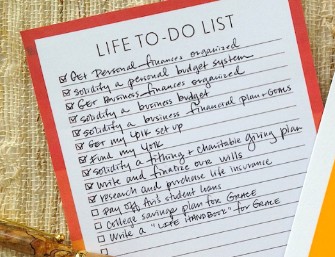 LIFE TO-DO LIST
GET Personal finances organized
solidify a personal budget system
GET Business finances organized
solidify a business budget
solidify a business financial plan + goals
GET my 401K set up
Fund my 401K
solidify a tithing + charitable giving plan
write and finalize our wills
research and purchase life insurance
pay off Ari's student loans
College savings plan for Grace
Write a "LIFE HANDBOOK" for Grace